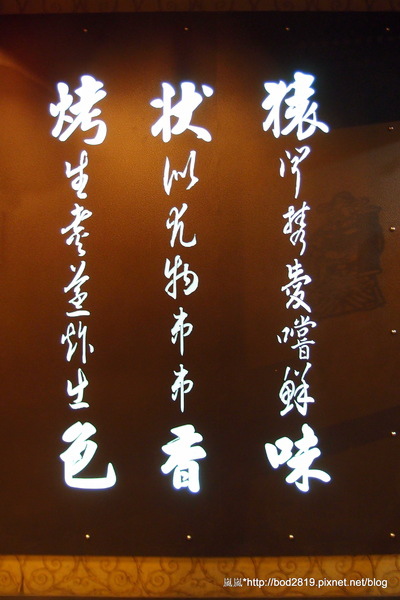 猿携愛嚐鮮味
状似尤物串串香
烤生煮蒸炸生色
嵐嵐*http://bod2819.pixnet.net/blog